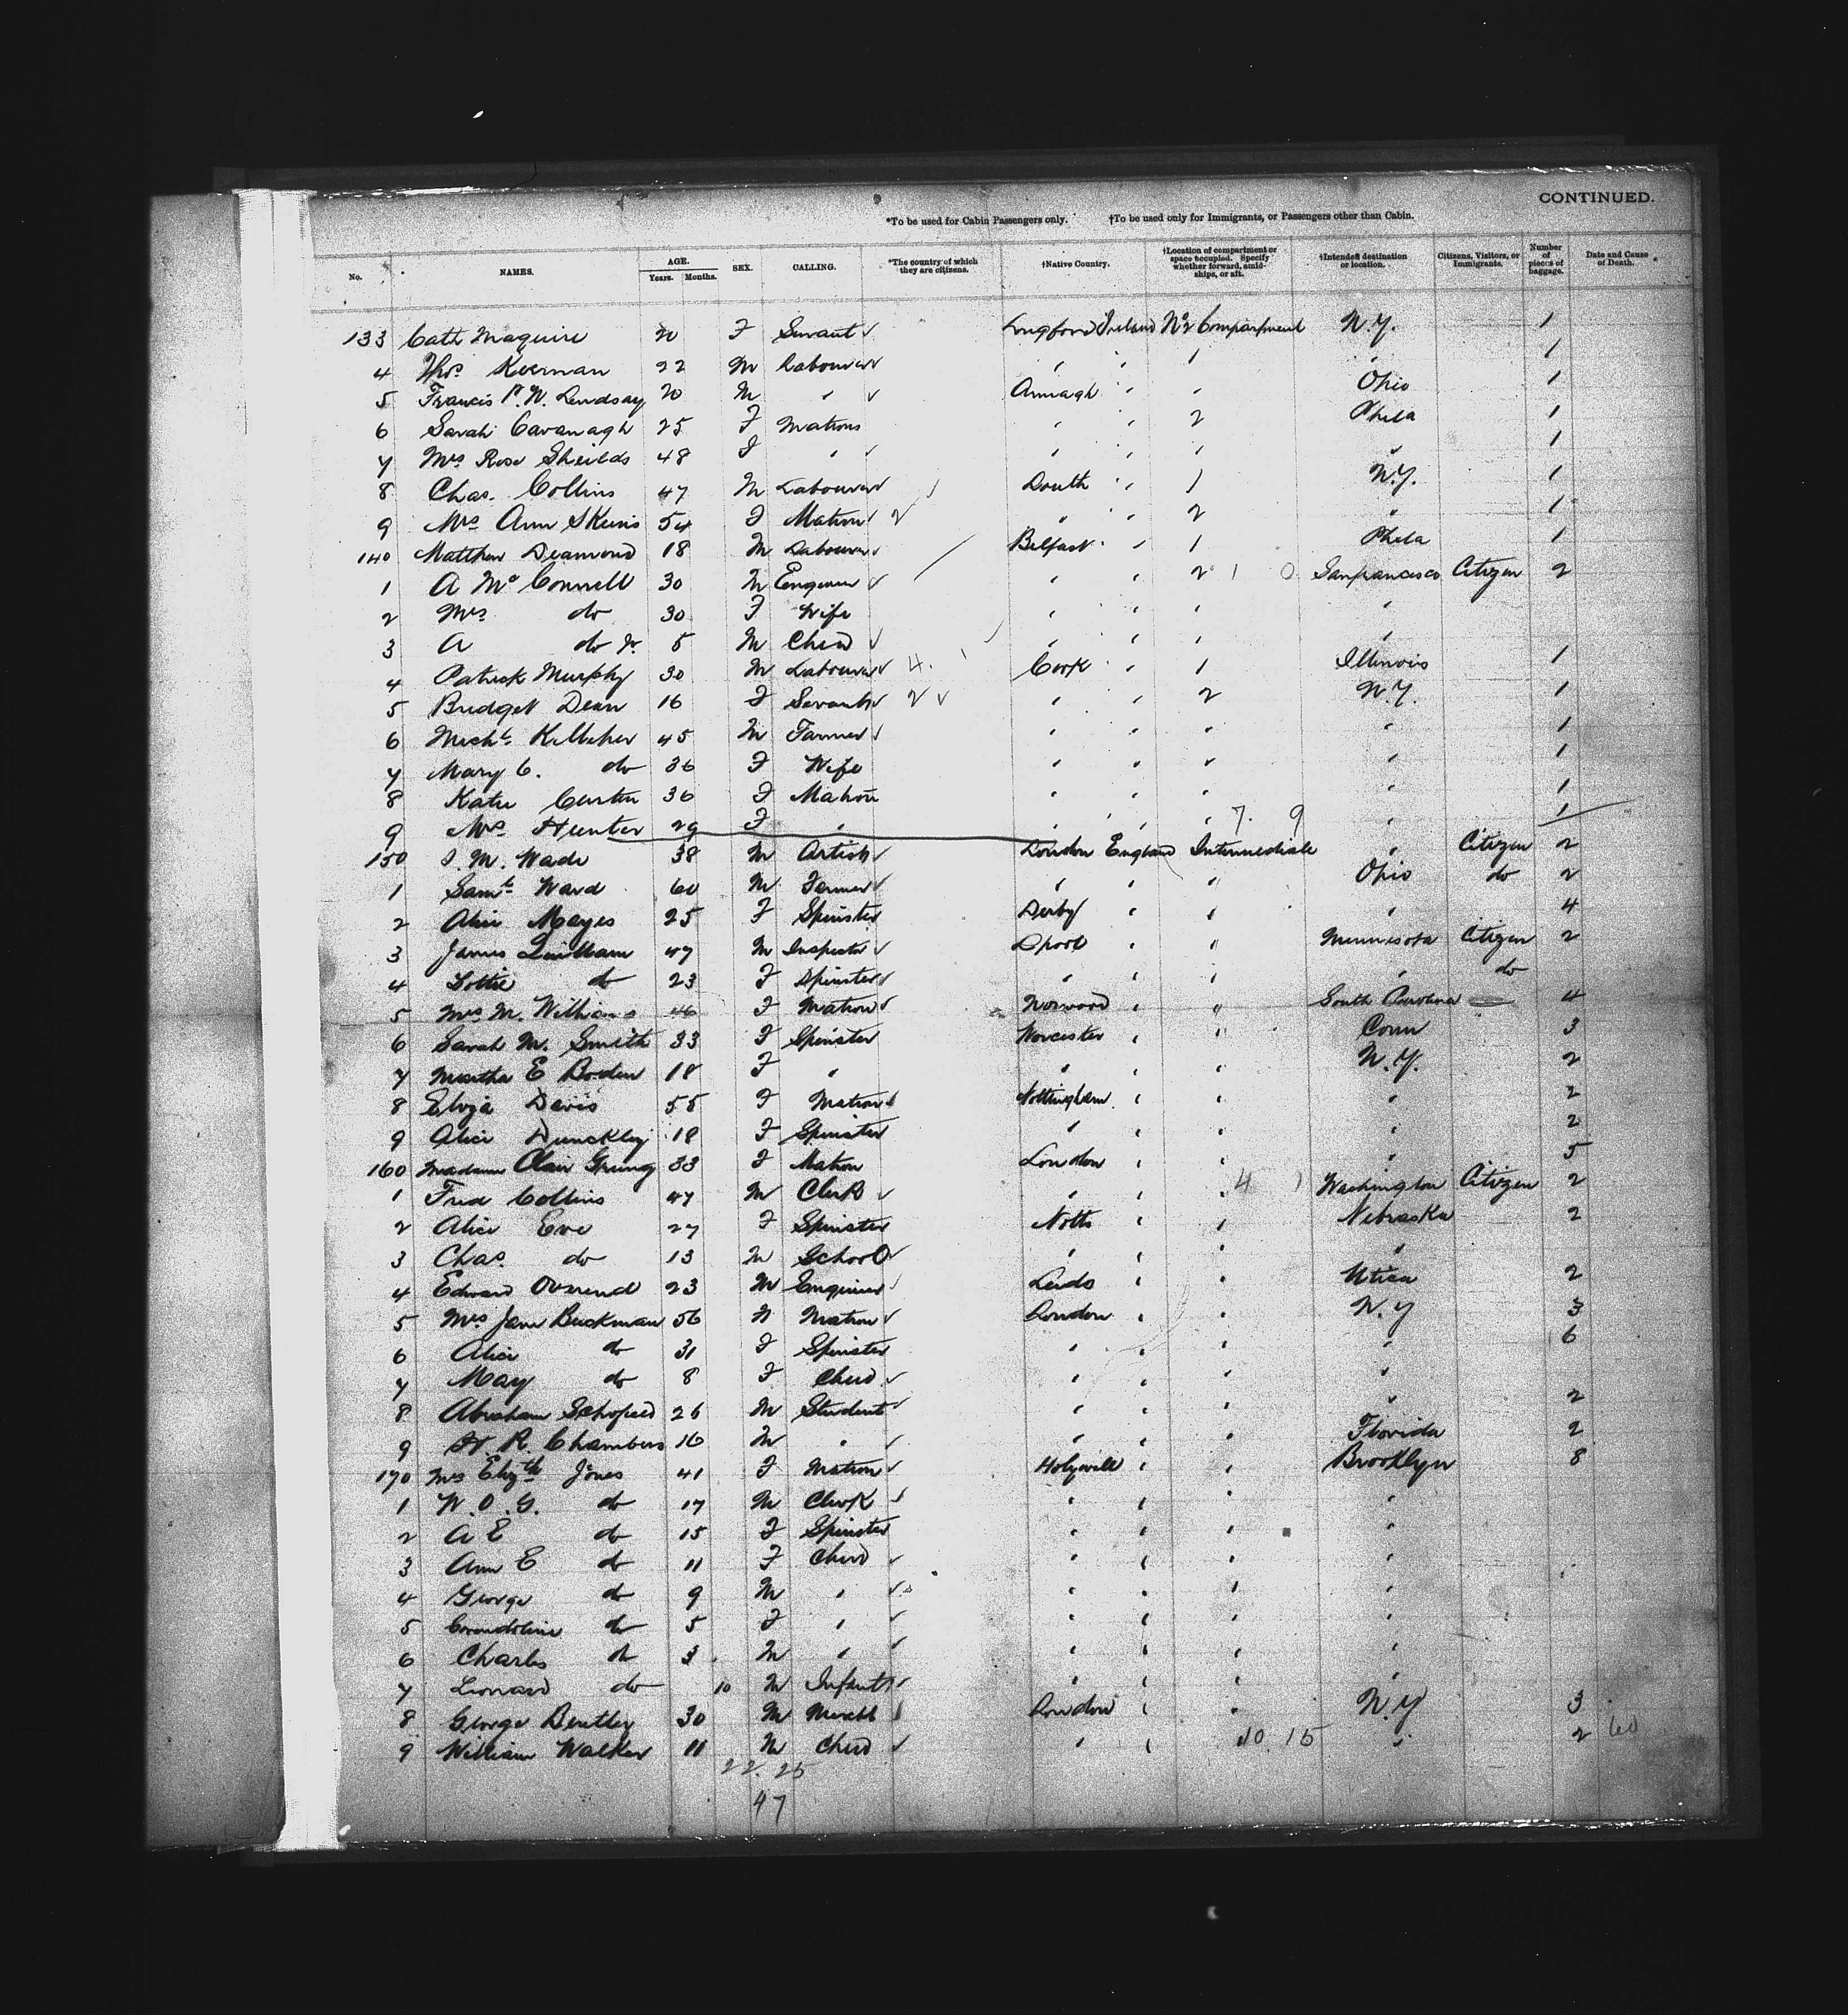 CONTINUED.
*To be used for Cabin Passengers only. †To be used only for Immigrants, or Passengers other than Cabin.
No. NAMES. AGE. Years. Months. SEX. CALLING. *The country of which they are citizens. †Native Country. †Location of compartment or space occupied. Specify whether forward, amidships, or aft. †Intended destination or location. Citizens, Visitors, or Immigrants. Number of pieces of baggage. Date and Cause of Death.
133 Cath Maguire 20 F Servant Longford Ireland No 2 Compartment N.Y. 1
4 Thos. Keernan 22 M Labourer " " 1 " 1
5 Francis P. W. Lindsay 20 M " Armagh " " Ohio 1
6 Sarah Cavanagh 25 F Matron " " 2 Phila 1
7 Mrs Rose Sheilds 48 F " " " " " 1
8 Chas. Collins 47 M Labourer Louth " 1 N.Y. 1
9 Mrs Ann Skenis 54 F Matron 2 " " 2 " 1
140 Matthew Deamond 18 M Labourer Belfast " 1 Phila 1
1 A McConnell 30 M Engineer " " 2 1 0 Sanfrancisco Citizen 2
2 Mrs do 30 F Wife " " " "
3 A do Jr. 5 M Child " " " "
4 Patrick Murphy 30 M Labourer 4. Cork " 1 Illinois 1
5 Bridget Dean 16 F Servant 2 " " 2 N.Y. 1
6 Michl. Kelleher 45 M Farmer " " " " 1
7 Mary C. do 36 F Wife " " " " 1
8 Kate Curtin 36 F Matron " " " " 1
9 Mrs. Hunter 29 F " " " " 7. 9 " 1
150 S. M. Wade 38 M Artist London England Intermediate " Citizen 2
1 Saml. Ward 60 M Farmer " " " Ohio do 2
2 Alice Mayes 25 F Spinster Derby " " " 4
3 James Quilliam 47 M Inspector Lpool " " Minnesota Citizen 2
4 Lottie do 23 F Spinster " " " " do
5 Mrs M. Williams 46 F Matron Norwood " " South Carolina 4
6 Sarah M. Smith 33 F Spinster Worcester " " Conn 3
7 Martha E Boden 18 F " " " " N.Y. 2
8 Eliza Davis 55 F Matron Nottingham " " " 2
9 Alice Dunckley 18 F Spinster " " " " 2
160 Madame Clair 33 F Matron London " " " 5
1 Fred Collins 47 M Clerk " " " 4 1 Washington Citizen 2
2 Alice Eve 27 F Spinster Notts " " Nebraska 2
3 Chas. do 13 M School " " " "
4 Edward Overend 23 M Engineer Leeds " " Utica 2
5 Mrs Jane Buckman 56 Matron London " " N.Y 3
6 Alice do 31 F Spinster " " " " 6
7 May do 8 F Child " " " "
8 Abraham Schofield 26 M Student " " " " 2
9 H. R. Chambers 16 M " " " " Florida 2
170 Mrs Elizth Jones 41 F Matron Holywell " " Brooklyn 8
1 W. O. G. do 17 M Clerk " " " "
2 A E do 15 F Spinster " " " "
3 Ann E do 11 F Child " " " "
4 George do 9 M " " " " "
5 Gwendoline do 5 F " " " " "
6 Charles do 3 M " " " " "
7 Leonard do 10 M Infant " " " "
8 George Bentley 30 M London " " N.Y 3
9 William Walker 11 M Child " " 10. 15 " 2 60
22. 25
47